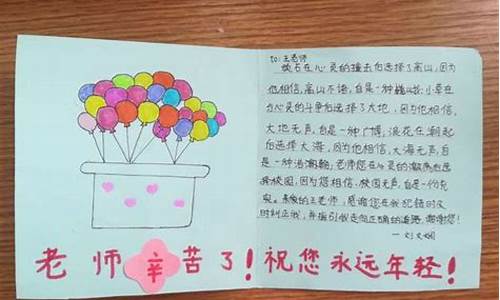 to:王老师
顽石在心灵的撞击后选择了高山,因为
他相信,高山不语,自是一种巍峨;小草在
为心灵的斗争后选择了大地,因为他相信,
大地无声,自是一种广博;浪花在潮起
后选择大海,因为他相信,大海无声,自
是一种浩瀚;老师您在心灵的潮汐后选
择校园,因为您相信,校园无声,自是一份充
实。亲爱的王老师,感谢您在我犯错时及
时纠正我,并指引我走向正确的道路,谢谢您!
老师辛苦了!祝您永远年轻!